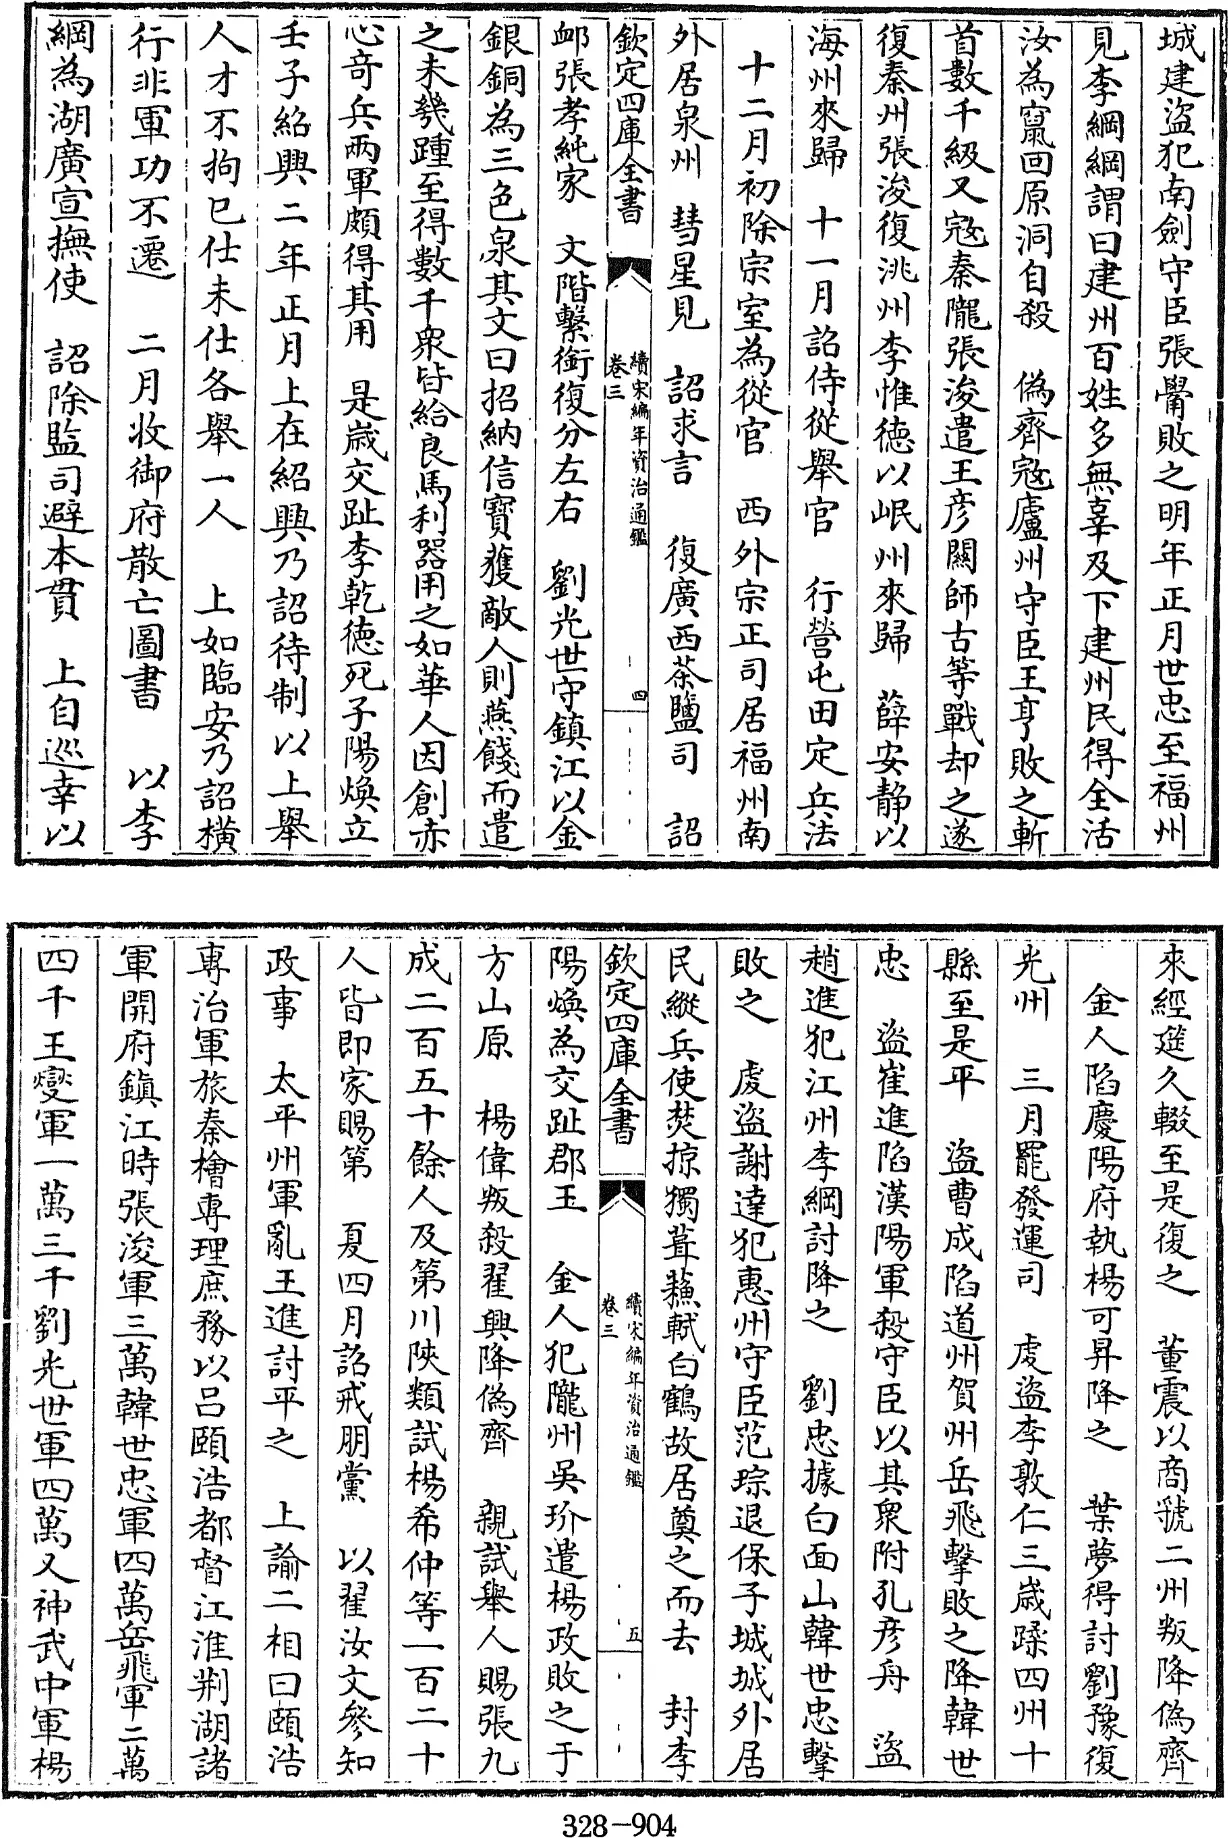 城建盜犯南劍守臣張觷敗之明年正月世忠至福州
見李綱綱謂曰建州百姓多無辜及下建州民得全活
汝為竄回原洞自殺　偽齊宼廬州守臣王亨敗之斬
首數千級又宼秦隴張浚遣王彦關師古等戰却之遂
復秦州張浚復洮州李惟德以岷州來歸　薛安静以
海州來歸　十一月詔侍從舉官　行營屯田定兵法
十二月初除宗室為從官　西外宗正司居福州南
外居泉州　彗星見　詔求言　復廣西茶鹽司　詔
欽定四庫全書　續宋編年資治通鑑卷三　四
䘏張孝純家　文階繫銜復分左右　劉光世守鎮江以金
銀銅為三色泉其文曰招納信寶獲敵人則燕餞而遣
之未幾踵至得數千衆皆給良馬利器用之如華人因創赤
心奇兵兩軍頗得其用　是歲交趾李乾德死子陽煥立
壬子紹興二年正月上在紹興乃詔待制以上舉
人才不拘已仕未仕各舉一人　上如臨安乃詔橫
行非軍功不遷　二月收御府散亡圖書　以李
綱為湖廣宣撫使　詔除監司避本貫　上自巡幸以
來經筵久輟至是復之　董震以商虢二州叛降偽齊
金人陷慶陽府執楊可昇降之　葉夢得討劉豫復
光州　三月罷發運司　虔盜李敦仁三歲蹂四州十
縣至是平　盜曹成陷道州賀州岳飛擊敗之降韓世
忠　盜崔進陷漢陽軍殺守臣以其衆附孔彦舟　盜
趙進犯江州李綱討降之　劉忠據白面山韓世忠擊
敗之　虔盜謝達犯惠州守臣范琮退保子城城外居
民縱兵使焚掠獨葺蘓軾白鶴故居奠之而去　封李
欽定四庫全書　續宋編年資治通鑑卷三　五
陽煥為交趾郡王　金人犯隴州吳玠遣楊政敗之于
方山原　楊偉叛殺翟興降偽齊　親試舉人賜張九
成二百五十餘人及第川陝類試楊希仲等一百二十
人皆即家賜第　夏四月詔戒朋黨　以翟汝文參知
政事　太平州軍亂王進討平之　上諭二相曰頤浩
專治軍旅秦檜專理庶務以吕頤浩都督江淮荆湖諸
軍開府鎮江時張浚軍三萬韓世忠軍四萬岳飛軍二萬
四千王𤫉軍一萬三千劉光世軍四萬又神武中軍楊
328－904